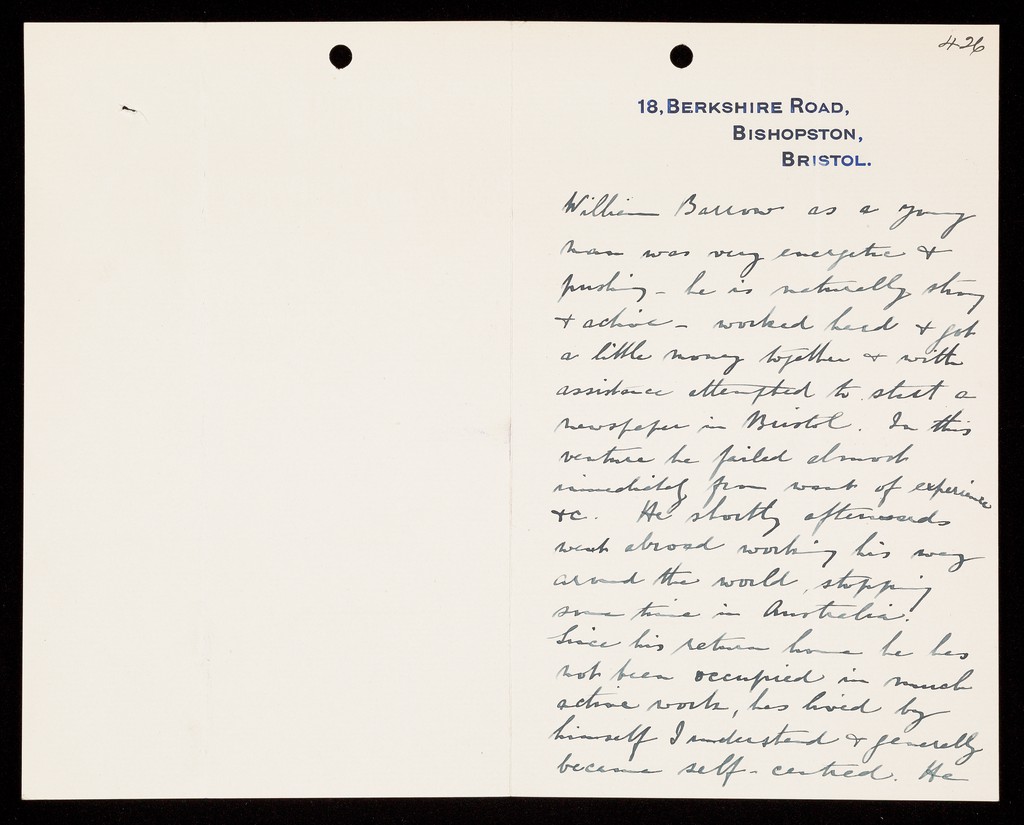 426
18, BERKSHIRE ROAD,
BISHOPSTON,
BRISTOL.
William Barrow as a young
man was very energetic &
pushing - he is naturally strong
& active - worked hard & got
a little money together & with
assistance attempted to start a
newspaper in Bristol. In this
venture he failed almost
immediately from want of experience
&c. He shortly afterwards
went abroad working his way
around the world, stopping
some time in Australia.
Since his return home he has
not been occupied in much
active work, has lived by
himself I understand & generally
became self-centred. He